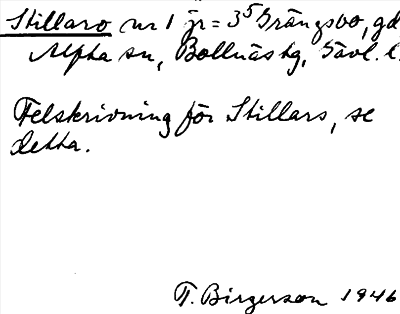 Stillaro nr 1 jr = 3⁵ Grängsbo, gd
Alpha sn, Bollnäs tg, Gävl. l.
Felskrivning för Stillars, se
detta.
T. Birgerson 1946